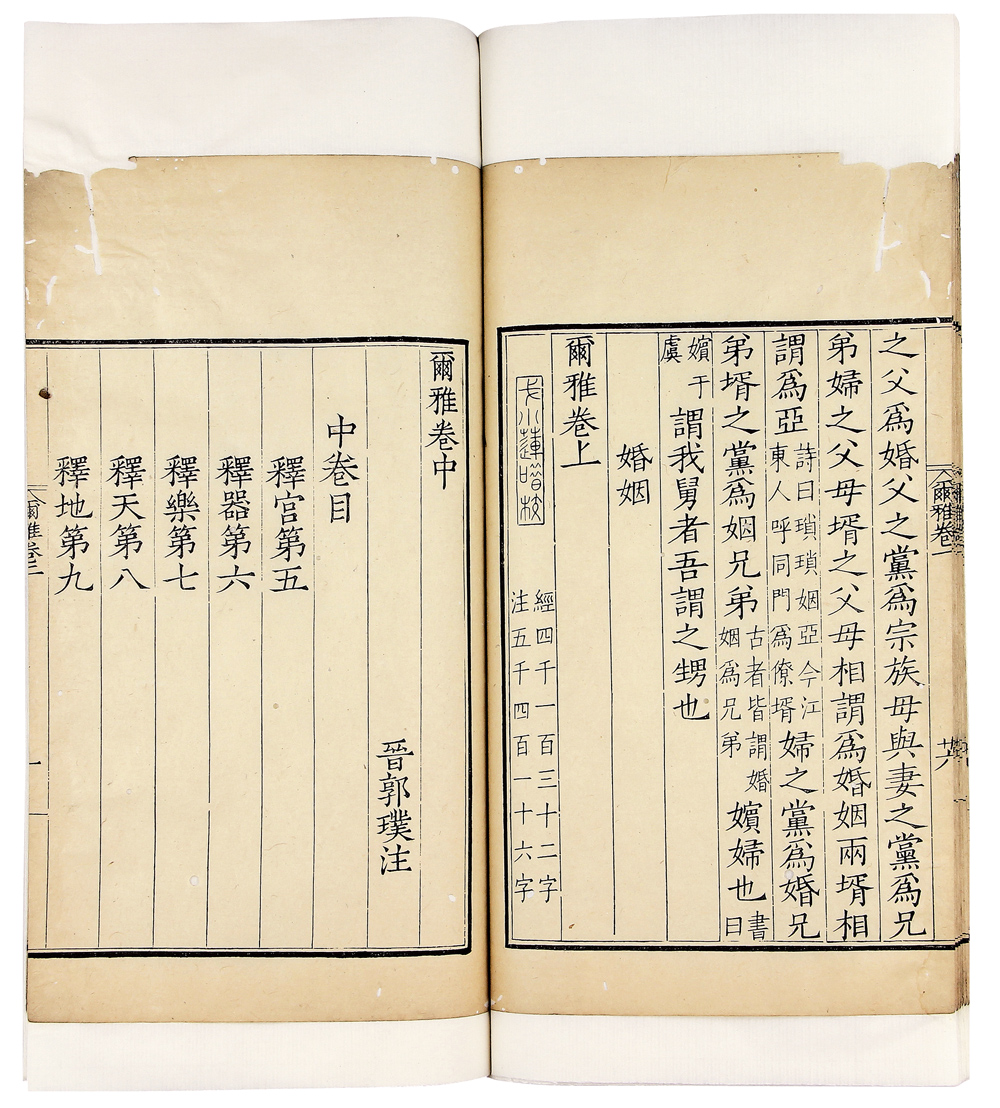 爾雅卷一
廿六
之父爲婚父之黨爲宗族母與妻之黨爲兄
弟婦之父母壻之父母相謂爲婚姻兩壻相
謂爲亞詩曰瑣瑣姻亞今江東人呼同門爲僚壻婦之黨爲婚兄
弟壻之黨爲姻兄弟古者皆謂婚姻爲兄弟嬪婦也書曰
嬪于虞謂我舅者吾謂之甥也
婚姻
爾雅卷上
經四千一百三十二字
注五千四百一十六字
戈小蓮校
爾雅卷中
晉郭璞注
中卷目
釋宮第五
釋器第六
釋樂第七
釋天第八
釋地第九
爾雅卷二
一